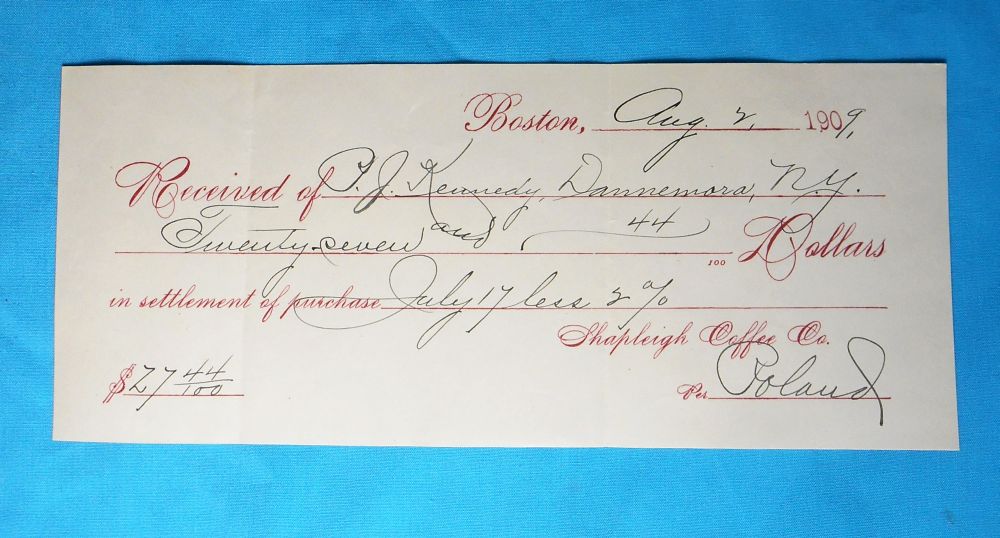 Boston, Aug. 2, 1909,
Received of P. J. Kennedy, Dannemora, N.Y.
Twenty-seven and 44/100 Dollars
in settlement of purchase July 17 less 2%
Shapleigh Coffee Co.
$27 44/100 Per Poland